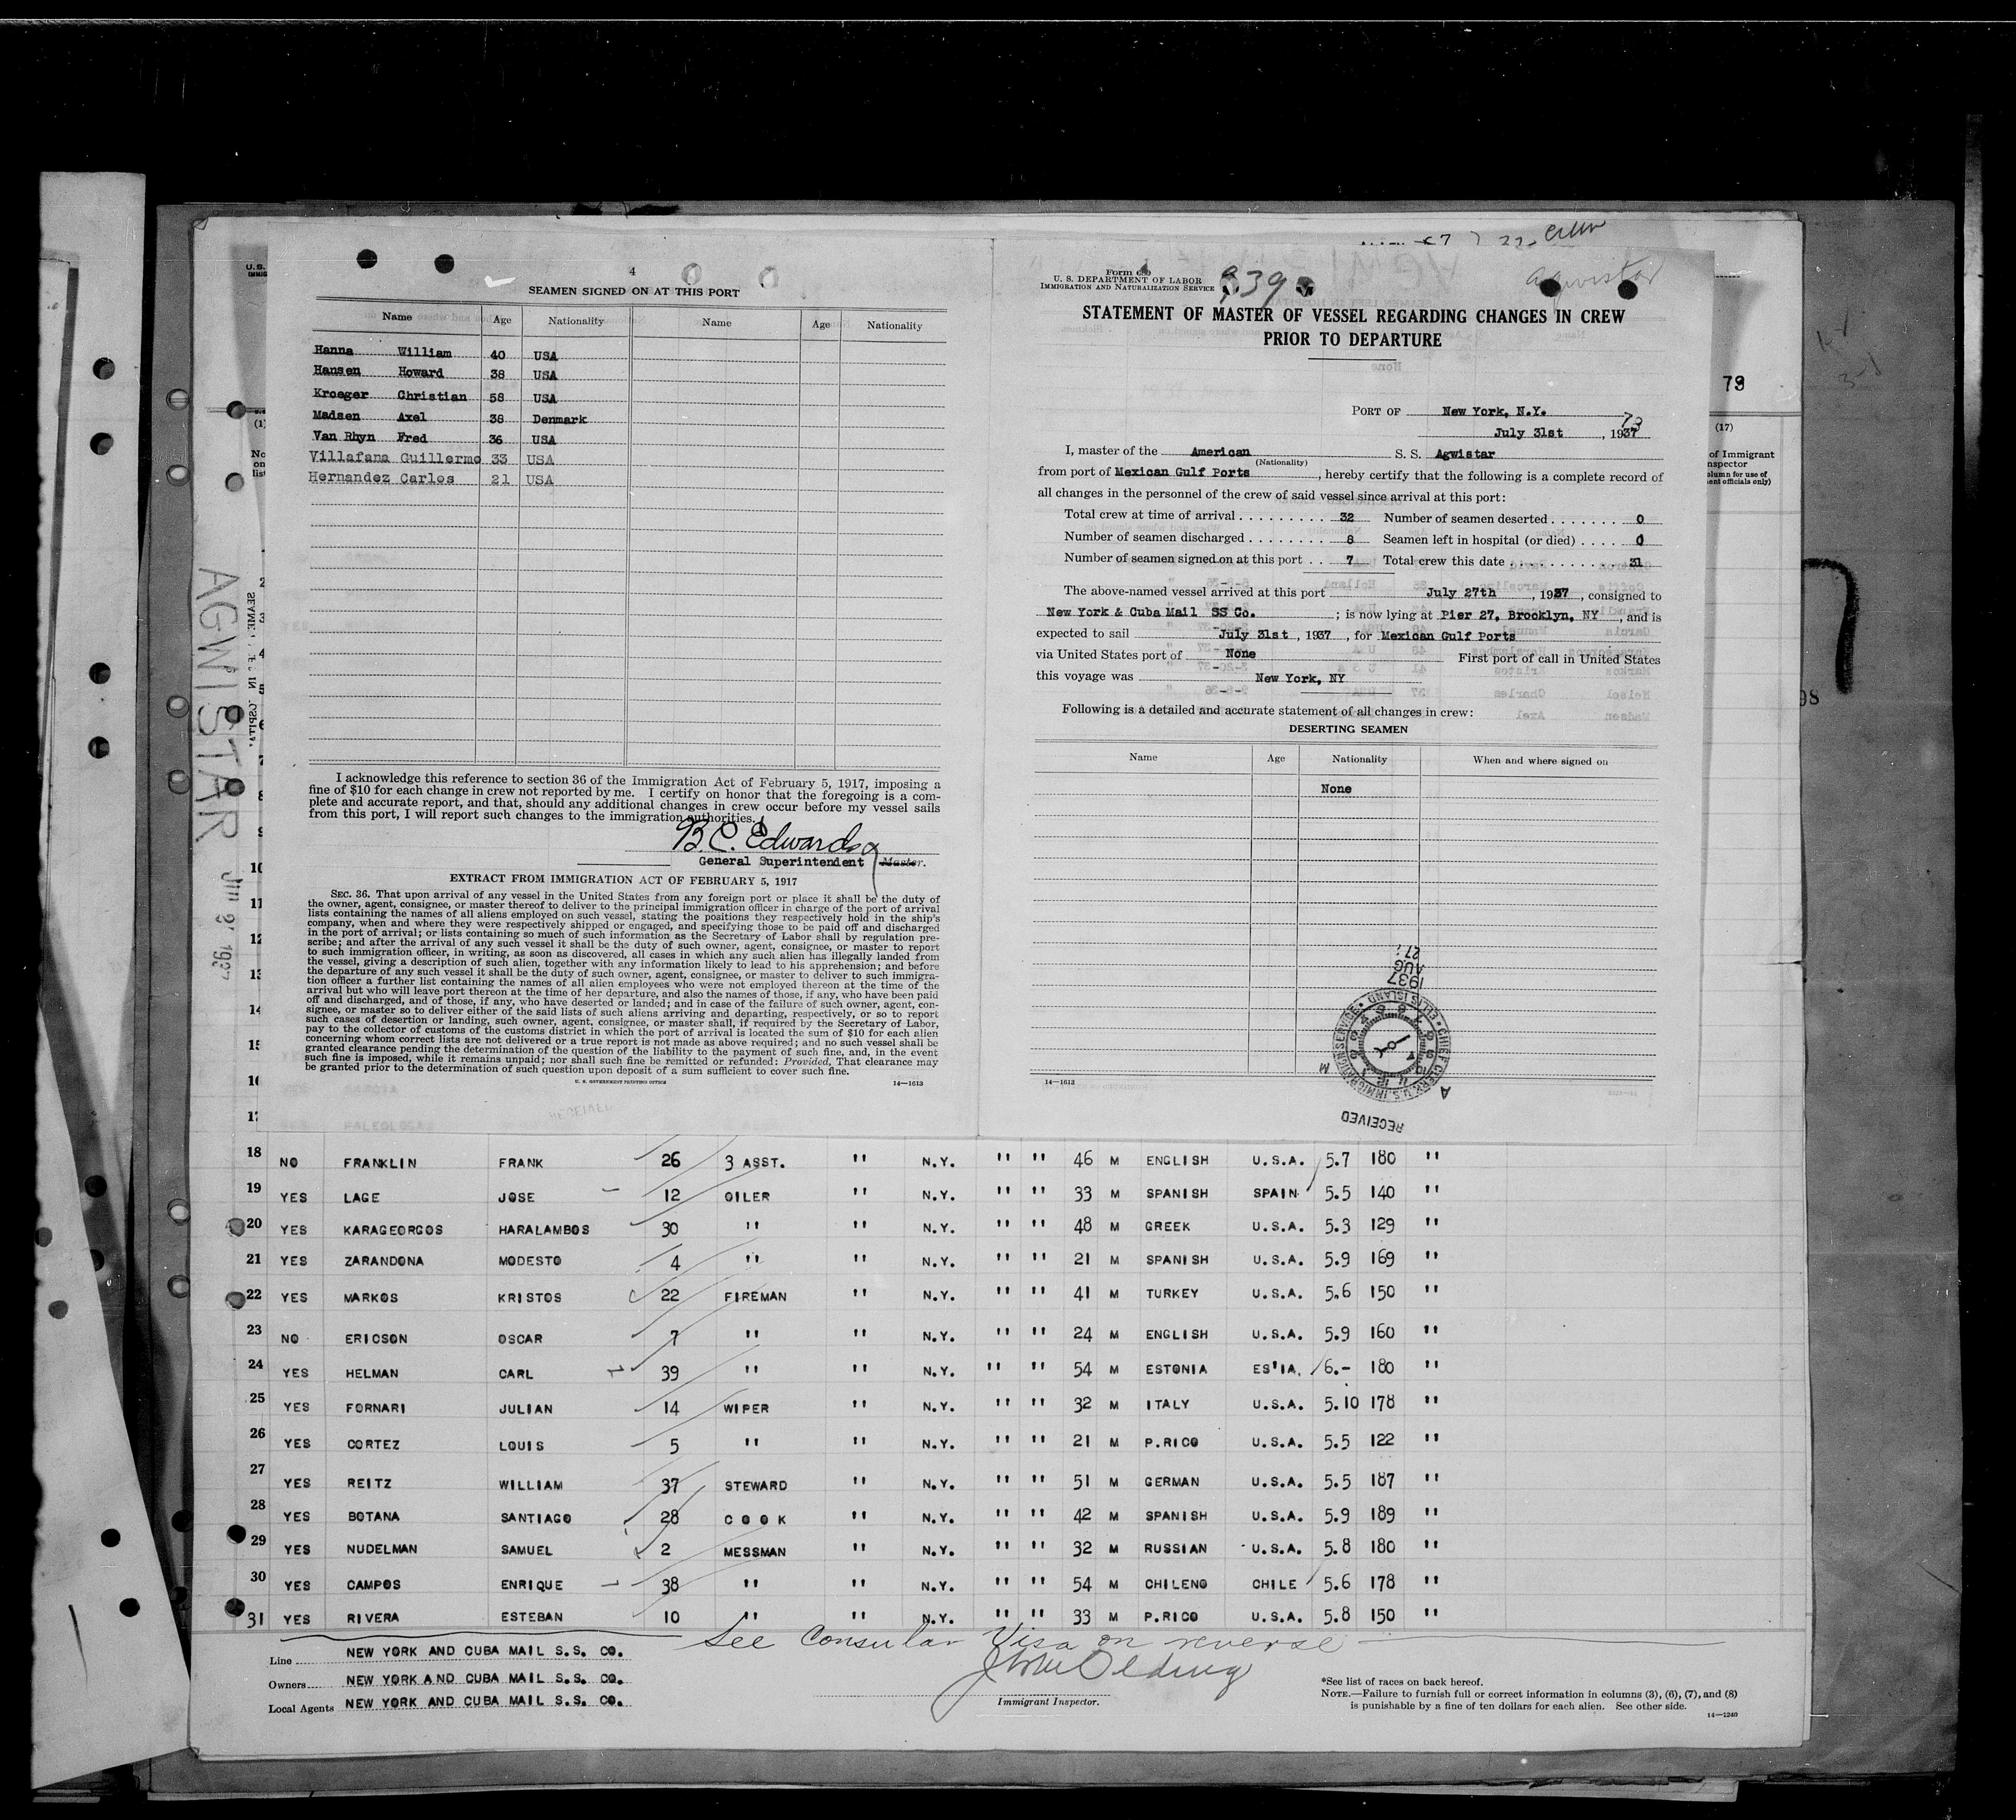 4
SEAMEN SIGNED ON AT THIS PORT
Name Age Nationality Name Age Nationality
Hanna William 40 USA
Hansen Howard 38 USA
Kroeger Christian 58 USA
Madsen Axel 38 Denmark
Van Rhyn Fred 36 USA
Villafana Guillermo 33 USA
Hernandez Carlos 21 USA
I acknowledge this reference to section 36 of the Immigration Act of February 5, 1917, imposing a
fine of $10 for each change in crew not reported by me. I certify on honor that the foregoing is a com-
plete and accurate report, and that, should any additional changes in crew occur before my vessel sails
from this port, I will report such changes to the immigration authorities.
B. C. Edwards
General Superintendent Master.
EXTRACT FROM IMMIGRATION ACT OF FEBRUARY 5, 1917
SEC. 36. That upon arrival of any vessel in the United States from any foreign port or place it shall be the duty of
the owner, agent, consignee, or master thereof to deliver to the principal immigration officer in charge of the port of arrival
lists containing the names of all aliens employed on such vessel, stating the positions they respectively hold in the ship's
company, when and where they were respectively shipped or engaged, and specifying those to be paid off and discharged
in the port of arrival; or lists containing so much of such information as the Secretary of Labor shall by regulation pre-
scribe; and after the arrival of any such vessel it shall be the duty of such owner, agent, consignee, or master to report
to such immigration officer, in writing, as soon as discovered, all cases in which any such alien has illegally landed from
the vessel, giving a description of such alien, together with any information likely to lead to his apprehension; and before
the departure of any such vessel it shall be the duty of such owner, agent, consignee, or master to deliver to such immigra-
tion officer a further list containing the names of all alien employees who were not employed thereon at the time of the
arrival but who will leave port thereon at the time of her departure, and also the names of those, if any, who have been paid
off and discharged, and of those, if any, who have deserted or landed; and in case of the failure of such owner, agent, con-
signee, or master so to deliver either of the said lists of such aliens arriving and departing, respectively, or so to report
such cases of desertion or landing, such owner, agent, consignee, or master shall, if required by the Secretary of Labor,
pay to the collector of customs of the customs district in which the port of arrival is located the sum of $10 for each alien
concerning whom correct lists are not delivered or a true report is not made as above required; and no such vessel shall be
granted clearance pending the determination of the question of the liability to the payment of such fine, and, in the event
such fine is imposed, while it remains unpaid; nor shall such fine be remitted or refunded: Provided, That clearance may
be granted prior to the determination of such question upon deposit of a sum sufficient to cover such fine.
U. S. GOVERNMENT PRINTING OFFICE 14—1613
Form 689
U. S. DEPARTMENT OF LABOR
IMMIGRATION AND NATURALIZATION SERVICE
839
Agwistar
STATEMENT OF MASTER OF VESSEL REGARDING CHANGES IN CREW
PRIOR TO DEPARTURE
PORT OF New York, N.Y.
73
July 31st , 1937
I, master of the American S. S. Agwistar
(Nationality)
from port of Mexican Gulf Ports , hereby certify that the following is a complete record of
all changes in the personnel of the crew of said vessel since arrival at this port:
Total crew at time of arrival 32 Number of seamen deserted 0
Number of seamen discharged 8 Seamen left in hospital (or died) 0
Number of seamen signed on at this port 7 Total crew this date 31
The above-named vessel arrived at this port July 27th , 1937 , consigned to
New York & Cuba Mail SS Co. ; is now lying at Pier 27, Brooklyn, NY , and is
expected to sail July 31st , 1937 , for Mexican Gulf Ports
via United States port of None First port of call in United States
this voyage was New York, NY
Following is a detailed and accurate statement of all changes in crew:
DESERTING SEAMEN
Name Age Nationality When and where signed on
None
1937
AUG
CHIEF CLERK U.S. IMMIGRATION SERVICE ELLIS ISLAND
RECEIVED
14—1613
AGWISTAR
73
(17)
of Immigrant
18 NO FRANKLIN FRANK 26 3 ASST. " N.Y. " " 46 M ENGLISH U.S.A. 5.7 180 "
19 YES LAGE JOSE 12 OILER " N.Y. " " 33 M SPANISH SPAIN 5.5 140 "
20 YES KARAGEORGOS HARALAMBOS 30 " " N.Y. " " 48 M GREEK U.S.A. 5.3 129 "
21 YES ZARANDONA MODESTO 4 " " N.Y. " " 21 M SPANISH U.S.A. 5.9 169 "
22 YES MARKOS KRISTOS 22 FIREMAN " N.Y. " " 41 M TURKEY U.S.A. 5.6 150 "
23 NO ERICSON OSCAR 7 " " N.Y. " " 24 M ENGLISH U.S.A. 5.9 160 "
24 YES HELMAN CARL 39 " " N.Y. " " 54 M ESTONIA ES'IA. 6.- 180 "
25 YES FORNARI JULIAN 14 WIPER " N.Y. " " 32 M ITALY U.S.A. 5.10 178 "
26 YES CORTEZ LOUIS 5 " " N.Y. " " 21 M P.RICO U.S.A. 5.5 122 "
27 YES REITZ WILLIAM 37 STEWARD " N.Y. " " 51 M GERMAN U.S.A. 5.5 187 "
28 YES BOTANA SANTIAGO 28 COOK " N.Y. " " 42 M SPANISH U.S.A. 5.9 189 "
29 YES NUDELMAN SAMUEL 2 MESSMAN " N.Y. " " 32 M RUSSIAN U.S.A. 5.8 180 "
30 YES CAMPOS ENRIQUE 38 " " N.Y. " " 54 M CHILENO CHILE 5.6 178 "
31 YES RIVERA ESTEBAN 10 " " N.Y. " " 33 M P.RICO U.S.A. 5.8 150 "
See Consular Visa on reverse
Line NEW YORK AND CUBA MAIL S.S. CO.
Owners NEW YORK AND CUBA MAIL S.S. CO.
Local Agents NEW YORK AND CUBA MAIL S.S. CO.
Immigrant Inspector.
*See list of races on back hereof.
NOTE.—Failure to furnish full or correct information in columns (3), (6), (7), and (8)
is punishable by a fine of ten dollars for each alien. See other side.
14—1240